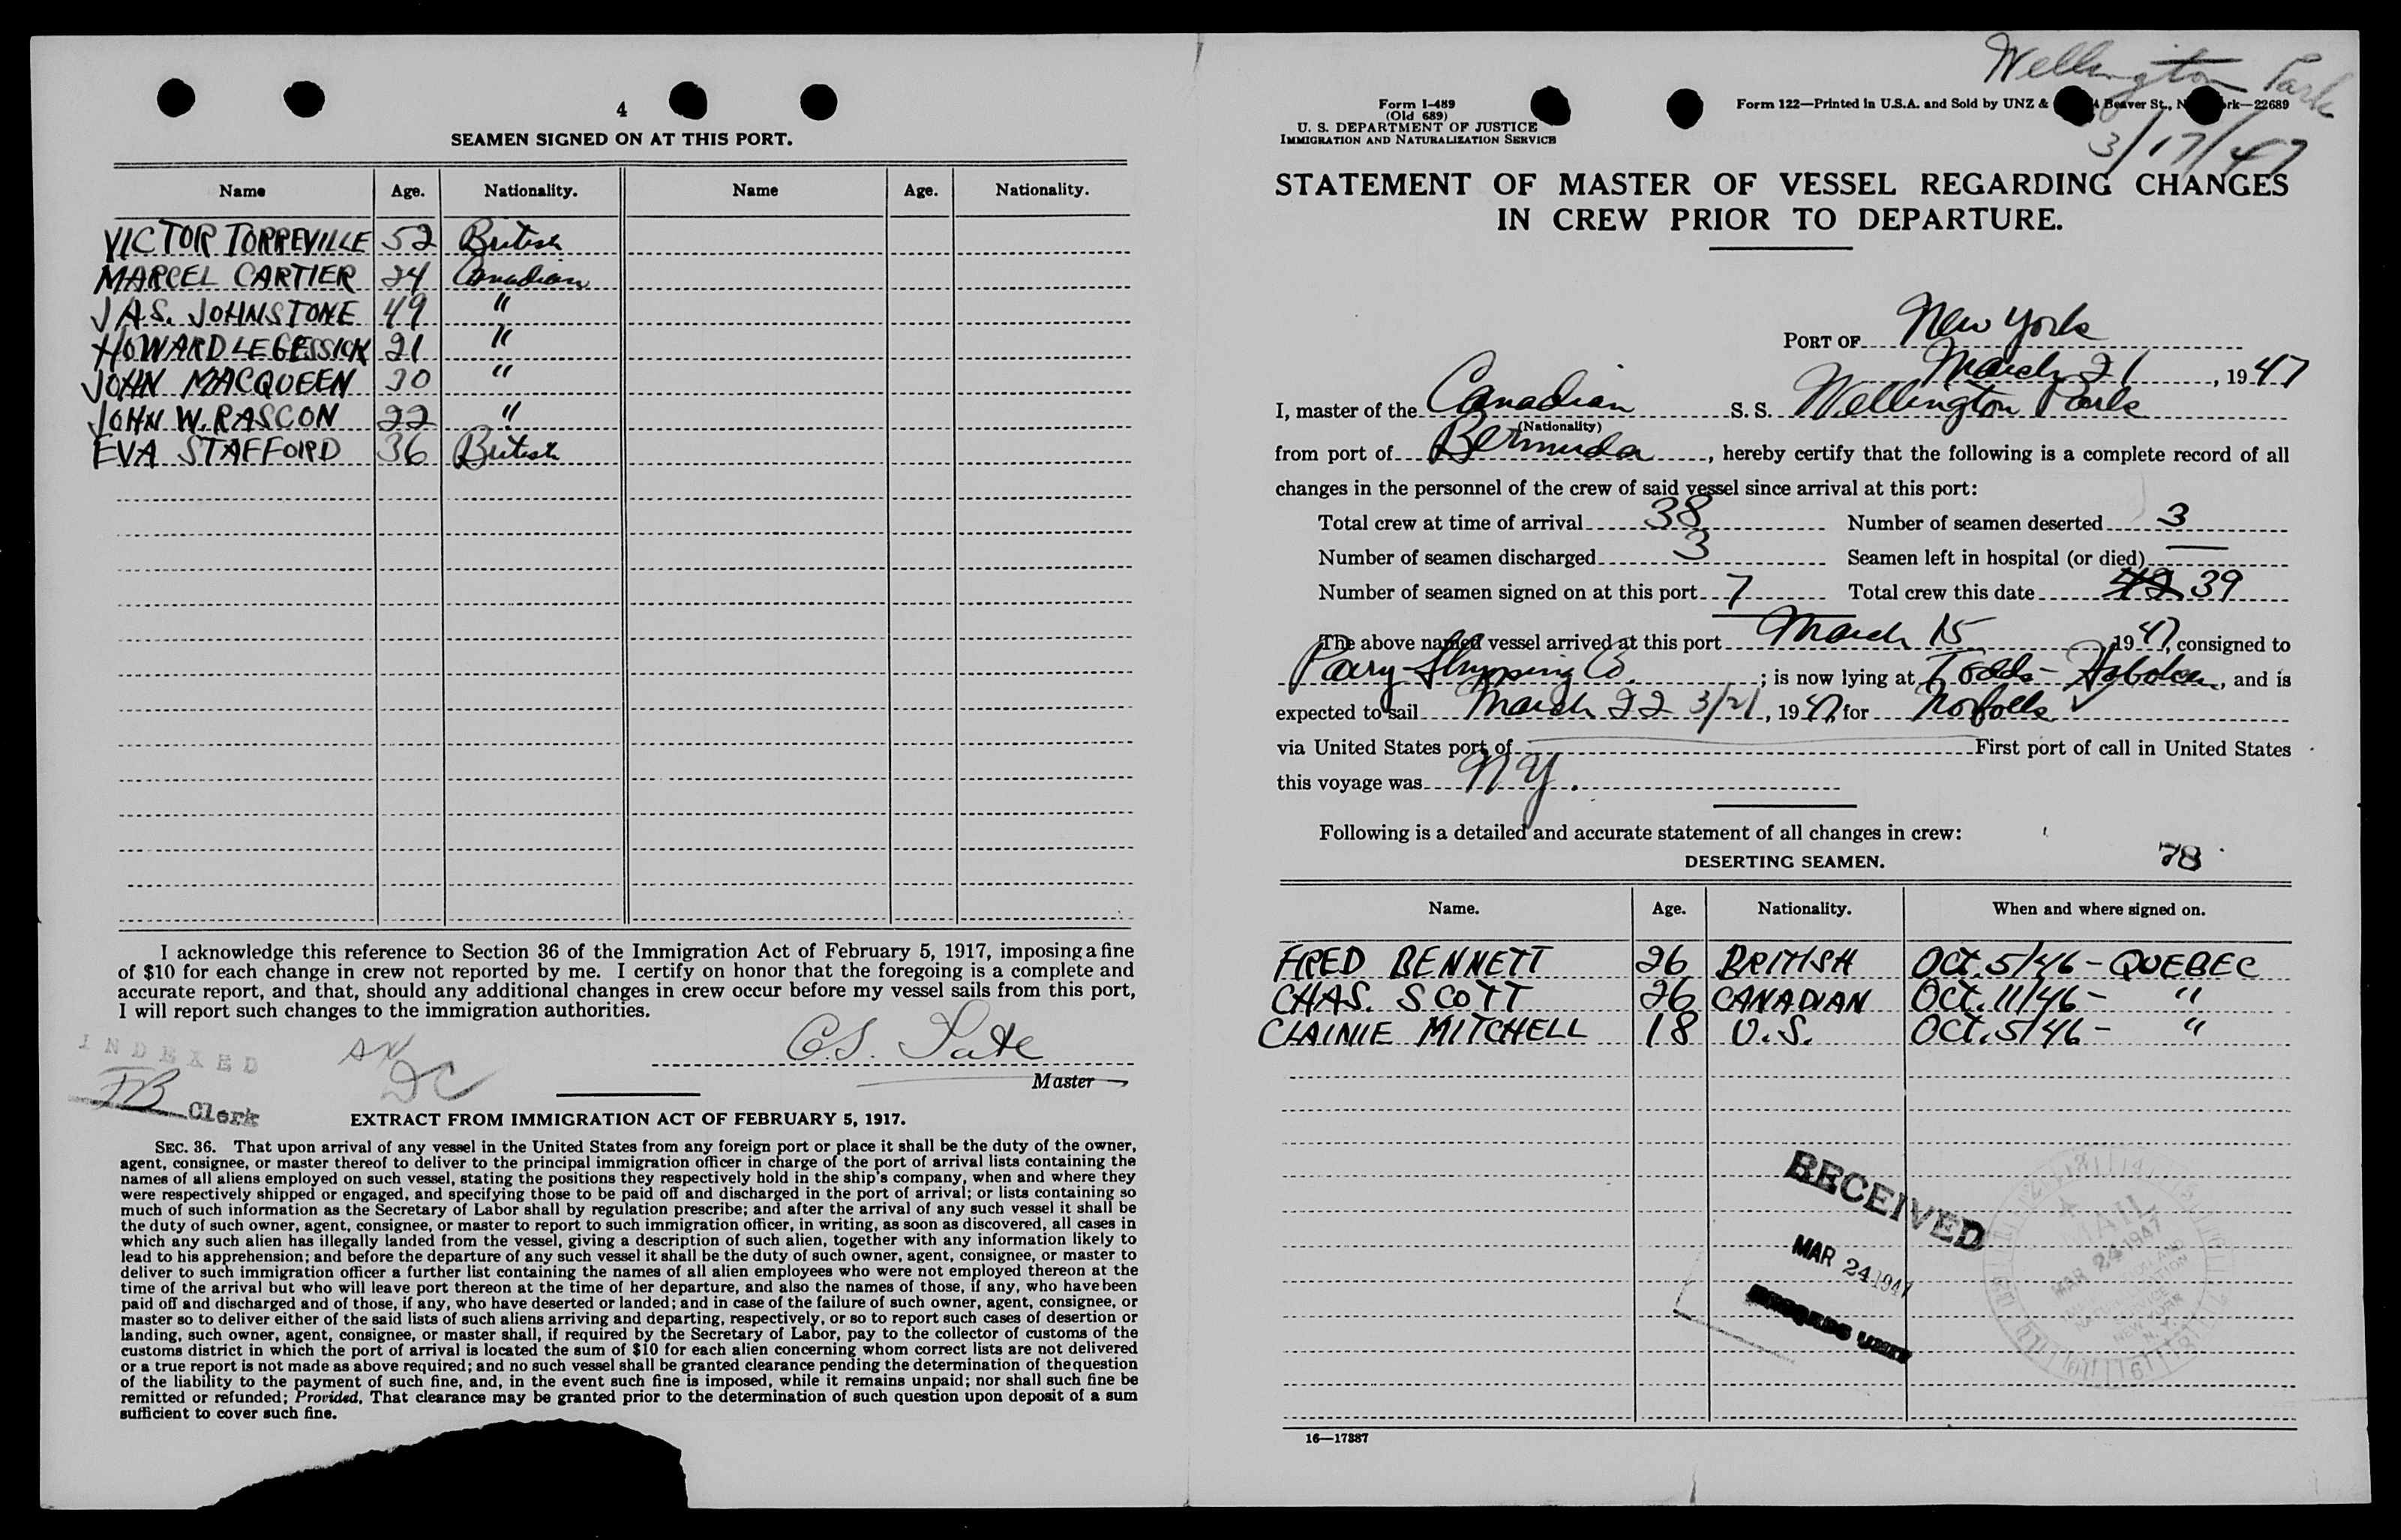 4
SEAMEN SIGNED ON AT THIS PORT.
Name Age. Nationality. Name Age. Nationality.
VICTOR TORREVILLE 52 British
MARCEL CARTIER 24 Canadian
JAS. JOHNSTONE 49 "
HOWARD LEGESSICK 21 "
JOHN MACQUEEN 30 "
JOHN W. RASCON 22 "
EVA STAFFORD 36 British
I acknowledge this reference to Section 36 of the Immigration Act of February 5, 1917, imposing a fine
of $10 for each change in crew not reported by me. I certify on honor that the foregoing is a complete and
accurate report, and that, should any additional changes in crew occur before my vessel sails from this port,
I will report such changes to the immigration authorities.
INDEXED
JB Clerk
DC
Master
EXTRACT FROM IMMIGRATION ACT OF FEBRUARY 5, 1917.
SEC. 36. That upon arrival of any vessel in the United States from any foreign port or place it shall be the duty of the owner,
agent, consignee, or master thereof to deliver to the principal immigration officer in charge of the port of arrival lists containing the
names of all aliens employed on such vessel, stating the positions they respectively hold in the ship's company, when and where they
were respectively shipped or engaged, and specifying those to be paid off and discharged in the port of arrival; or lists containing so
much of such information as the Secretary of Labor shall by regulation prescribe; and after the arrival of any such vessel it shall be
the duty of such owner, agent, consignee, or master to report to such immigration officer, in writing, as soon as discovered, all cases in
which any such alien has illegally landed from the vessel, giving a description of such alien, together with any information likely to
lead to his apprehension; and before the departure of any such vessel it shall be the duty of such owner, agent, consignee, or master to
deliver to such immigration officer a further list containing the names of all alien employees who were not employed thereon at the
time of the arrival but who will leave port thereon at the time of her departure, and also the names of those, if any, who have been
paid off and discharged and of those, if any, who have deserted or landed; and in case of the failure of such owner, agent, consignee, or
master so to deliver either of the said lists of such aliens arriving and departing, respectively, or so to report such cases of desertion or
landing, such owner, agent, consignee, or master shall, if required by the Secretary of Labor, pay to the collector of customs of the
customs district in which the port of arrival is located the sum of $10 for each alien concerning whom correct lists are not delivered
or a true report is not made as above required; and no such vessel shall be granted clearance pending the determination of the question
of the liability to the payment of such fine, and, in the event such fine is imposed, while it remains unpaid; nor shall such fine be
remitted or refunded; Provided, That clearance may be granted prior to the determination of such question upon deposit of a sum
sufficient to cover such fine.
Wellington Park
3/17/47
Form I-489
(Old 689)
U. S. DEPARTMENT OF JUSTICE
IMMIGRATION AND NATURALIZATION SERVICE
Form 122—Printed in U.S.A. and Sold by UNZ & Beaver St., 22689
STATEMENT OF MASTER OF VESSEL REGARDING CHANGES
IN CREW PRIOR TO DEPARTURE.
PORT OF New York
March 21, 1947
I, master of the Canadian S. S. Wellington Park
(Nationality)
from port of Bermuda, hereby certify that the following is a complete record of all
changes in the personnel of the crew of said vessel since arrival at this port:
Total crew at time of arrival 38 Number of seamen deserted 3
Number of seamen discharged 3 Seamen left in hospital (or died) —
Number of seamen signed on at this port 7 Total crew this date 42 39
The above named vessel arrived at this port March 15 1947, consigned to
Shipping Co.; is now lying at Todds - Hoboken, and is
expected to sail March 22 3/21, 1947, for Norfolk
via United States port of First port of call in United States
this voyage was NY.
Following is a detailed and accurate statement of all changes in crew:
DESERTING SEAMEN. 78
Name. Age. Nationality. When and where signed on.
FRED BENNETT 26 BRITISH OCT. 5/46 - QUEBEC
CHAS. SCOTT 26 CANADIAN OCT. 11/46 - "
CLAINIE MITCHELL 18 U.S. OCT. 5/46 - "
RECEIVED
MAR 24 1947
MAIL
MAR 24 1947
NEW YORK
16—17887